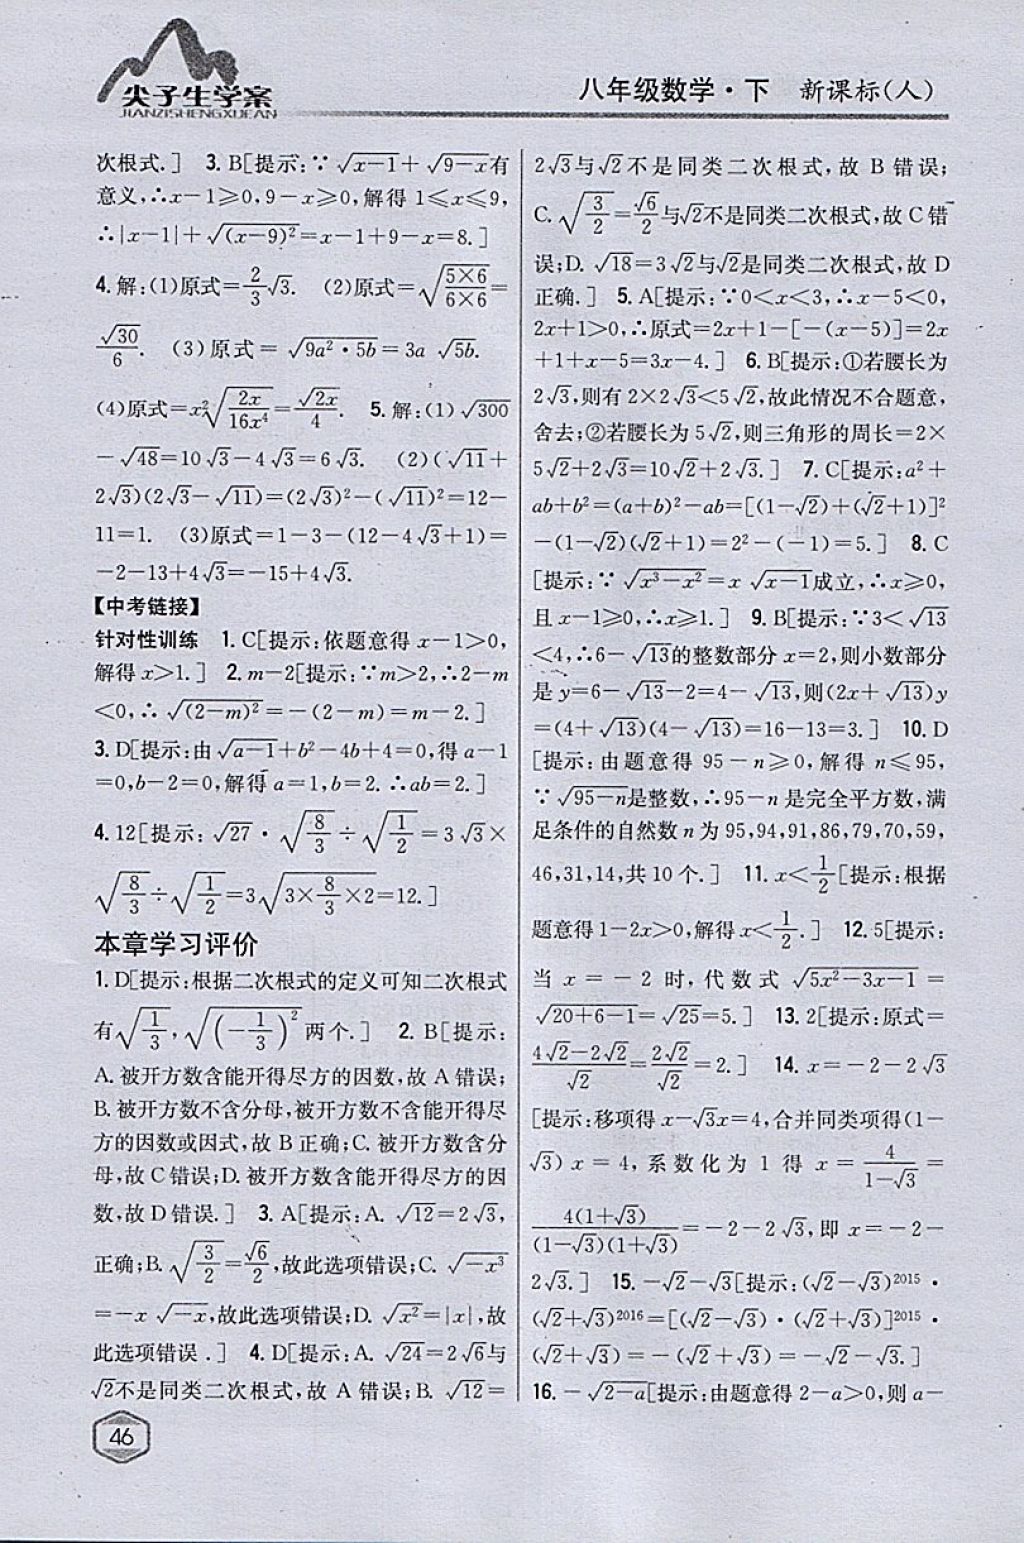 尖子生学案
JIANZISHENGXUEAN
八年级数学·下 新课标(人)
次根式.] 3. B[提示:∵√(x-1)+√(9-x)有
意义,∴x-1≥0,9-x≥0,解得 1≤x≤9,
∴|x-1|+√((x-9)²)=x-1+9-x=8.]
4. 解:(1)原式=2/3√3. (2)原式=√((5×6)/(6×6))=
√30/6. (3)原式=√(9a²·5b)=3a√(5b).
(4)原式=x²√(2x/(16x⁴))=√(2x)/4. 5. 解:(1)√300
-√48=10√3-4√3=6√3. (2)(√11+
2√3)(2√3-√11)=(2√3)²-(√11)²=12-
11=1. (3)原式=1-3-(12-4√3+1)=
-2-13+4√3=-15+4√3.
【中考链接】
针对性训练 1. C[提示:依题意得 x-1>0,
解得 x>1.] 2. m-2[提示:∵m>2,∴2-m
<0,∴√((2-m)²)=-(2-m)=m-2.]
3. D[提示:由√(a-1)+b²-4b+4=0,得 a-1
=0,b-2=0,解得 a=1,b=2. ∴ab=2.]
4. 12[提示:√27·√(8/3)÷√(1/2)=3√3×
√(8/3)÷√(1/2)=3√(3×8/3×2)=12.]
本章学习评价
1. D[提示:根据二次根式的定义可知二次根式
有√(1/3),√((-1/3)²)两个.] 2. B[提示:
A. 被开方数含能开得尽方的因数,故 A 错误;
B. 被开方数不含分母,被开方数不含能开得尽
方的因数或因式,故 B 正确;C. 被开方数含分
母,故 C 错误;D. 被开方数含能开得尽方的因
数,故 D 错误.] 3. A[提示:A. √12=2√3,
正确;B. √(3/2)=√6/2,故此选项错误;C. √(-x³)
=-x√(-x),故此选项错误;D. √(x²)=|x|,故
此选项错误.] 4. D[提示:A. √24=2√6与
√2不是同类二次根式,故 A 错误;B. √12=
2√3与√2不是同类二次根式,故 B 错误;
C. √(3/2)=√6/2与√2不是同类二次根式,故 C 错
误;D. √18=3√2与√2是同类二次根式,故 D
正确.] 5. A[提示:∵0<x<3,∴x-5<0,
2x+1>0,∴原式=2x+1-[-(x-5)]=2x
+1+x-5=3x-4.] 6. B[提示:①若腰长为
2√3,则有 2×2√3<5√2,故此情况不合题意,
舍去;②若腰长为 5√2,则三角形的周长=2×
5√2+2√3=10√2+2√3.] 7. C[提示:a²+
ab+b²=(a+b)²-ab=[(1-√2)+(√2+1)]²
-(1-√2)(√2+1)=2²-(-1)=5.] 8. C
[提示:∵√(x³-x²)=x√(x-1)成立,∴x≥0,
且 x-1≥0,∴x≥1.] 9. B[提示:∵3<√13
<4,∴6-√13的整数部分 x=2,则小数部分
是 y=6-√13-2=4-√13,则(2x+√13)y
=(4+√13)(4-√13)=16-13=3.] 10. D
[提示:由题意得 95-n≥0,解得 n≤95,
∵√(95-n)是整数,∴95-n 是完全平方数,满
足条件的自然数 n 为 95,94,91,86,79,70,59,
46,31,14,共 10 个.] 11. x<1/2[提示:根据
题意得 1-2x>0,解得 x<1/2.] 12. 5[提示:
当 x=-2 时,代数式√(5x²-3x-1)=
√(20+6-1)=√25=5.] 13. 2[提示:原式=
(4√2-2√2)/√2=2√2/√2=2.] 14. x=-2-2√3
[提示:移项得 x-√3x=4,合并同类项得(1-
√3)x=4,系数化为 1 得 x=4/(1-√3)=
4(1+√3)/((1-√3)(1+√3))=-2-2√3,即 x=-2-
2√3.] 15. -√2-√3[提示:(√2-√3)²⁰¹⁵·
(√2+√3)²⁰¹⁶=[(√2-√3)·(√2+√3)]²⁰¹⁵·
(√2+√3)=-(√2+√3)=-√2-√3.]
16. -√(2-a)[提示:由题意得 2-a>0,则 a-
46